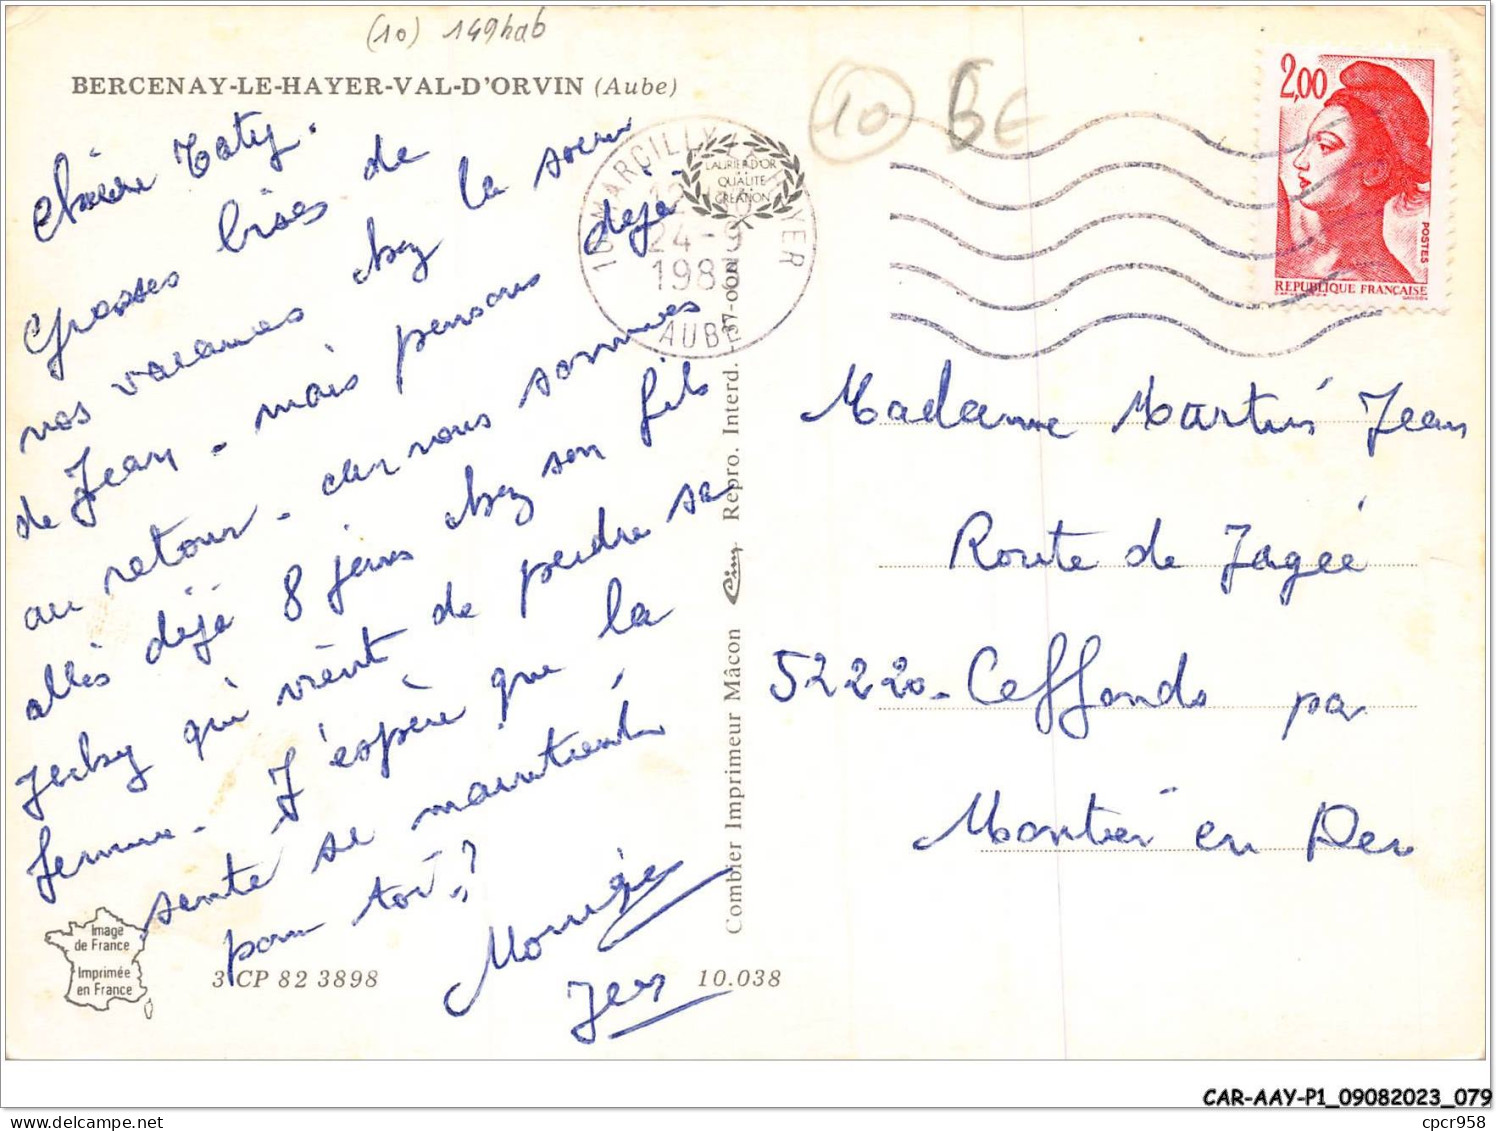 (10) 149hab
BERCENAY-LE-HAYER-VAL-D'ORVIN (Aube)
10 BE
2,00
POSTES
REPUBLIQUE FRANÇAISE
10 MARCILLY
HAYER
24-9
198
AUBE
LAURIER D'OR
QUALITE
GREANON
Chère Taty.
Grosses bises de
nos vacances chez la soeur
de Jean - mais pensons déjà
au retour - car nous sommes
allés déjà 8 jours chez son fils
Jecky qui vient de perdre sa
femme - J'espère que la
santé se maintient
pour toi ?
Monique
Jean
Madame Martin Jean
Route de Jagée
52220 - Ceffonds par
Montier en Der
Combier Imprimeur Mâcon Cim Repro. Interd. 37-000
Image
de France
Imprimée
en France
3 CP 82 3898
10.038
CAR-AAY-P1_09082023_079
cpcr958